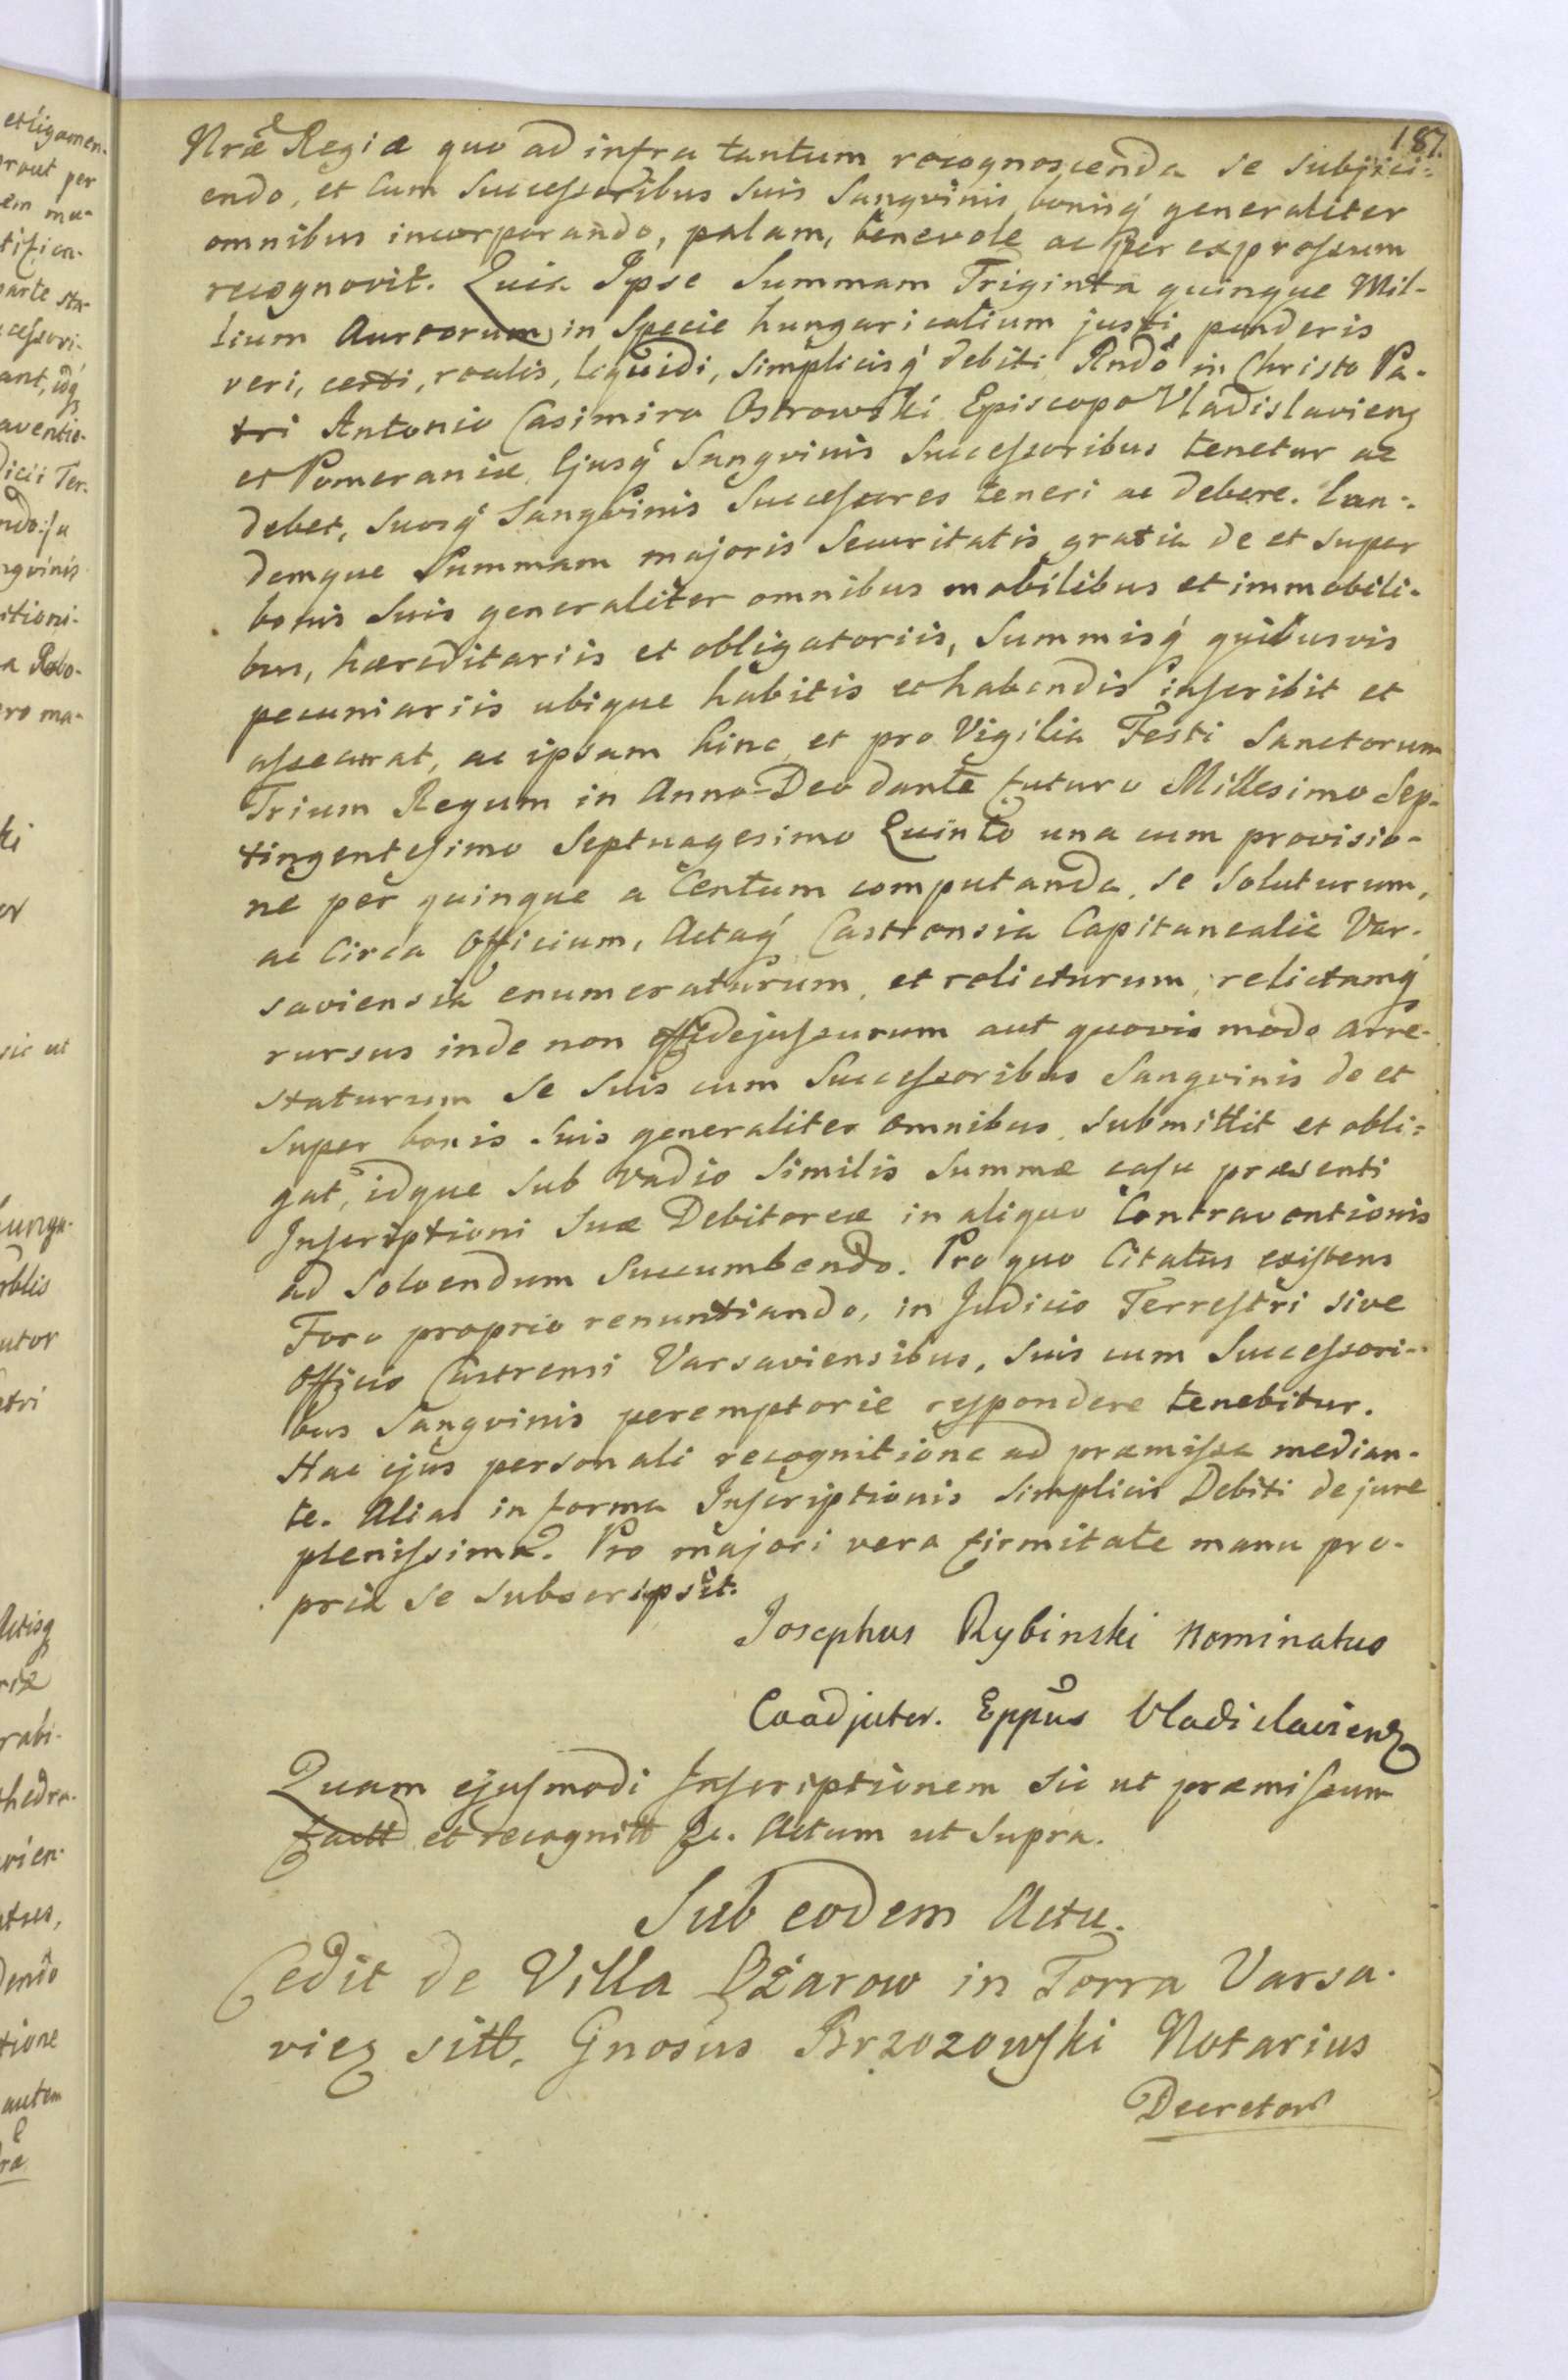 187.
Nræ Regiæ quo ad infra tantum recognoscenda se subjici=
endo, et cum Successoribus suis Sangvinis bonisq́ generaliter
omnibus incorporando, palam, benevole ac per expressum
recognovit. Quia Ipse Summam Triginta quinque Mil-
lium Aureorum in Specie hungaricalium justi, ponderis
veri, certi, realis, liquidi, simplicisq́ debiti Rndo in Christo Pa-
tri Antonio Casimiro Ostrowski Episcopo Vladislavien
et Pomeraniæ Ejusq́ Sangvinis Successoribus tenetur ac
debet, Suosq́ Sangvinis Successores teneri ac debere. Ean-
demque Summam majoris Securitatis gratia de et super
bonis Suis generaliter omnibus mobilibus et immobili-
bus, hæreditariis et obligatoriis, Summisq́ quibusvis
pecuniariis ubique habitis et habendis inscribit et
assecurat, ac ipsam hinc et pro Vigilia Festi Sanctorum
Trium Regum in Anno Deo dante futuro Millesimo Sep-
tingentesimo Septuagesimo Quinto una cum provisio-
ne per quinque a Centum computanda, se soluturum,
ac Circa Officium, Actaq́ Castrensia Capitanealia Var-
saviensia enumeraturum, et relicturum, relictamq́
rursus inde non effidejussurum aut quovis modo arre-
staturum Se Suis cum Successoribus Sangvinis de et
super bonis suis generaliter omnibus submittit et obli=
gat, idque sub vadio similis Summæ casu præsenti
Inscriptioni Suæ Debitoreæ in aliquo Contraventionis
ad solvendum succumbendo. Pro quo Citatus existens
Foro proprio renuntiando, in Judicio Terrestri sive
Officio Castrensi Varsaviensibus, suis cum Successori-
bus Sangvinis peremptorie respondere tenebitur.
Hac ejus personali recognitione ad præmissa median-
te. Alias in forma Inscriptionis Simplicis Debiti de jure
plenissima. Pro majori vero firmitate manu pro-
pria se subscripsit.
Josephus Rybinski Nominatus
Coadjutor. Eppus Vladislavien
Quam ejusmodi Inscriptionem sic ut præmissum
factt et recognitt &c. Actum ut supra.
Sub eodem Actu.
Cedit de Villa Ożarow in Terra Varsa-
vien sitt. Gnosus Brzozowski Notarius
Decretor